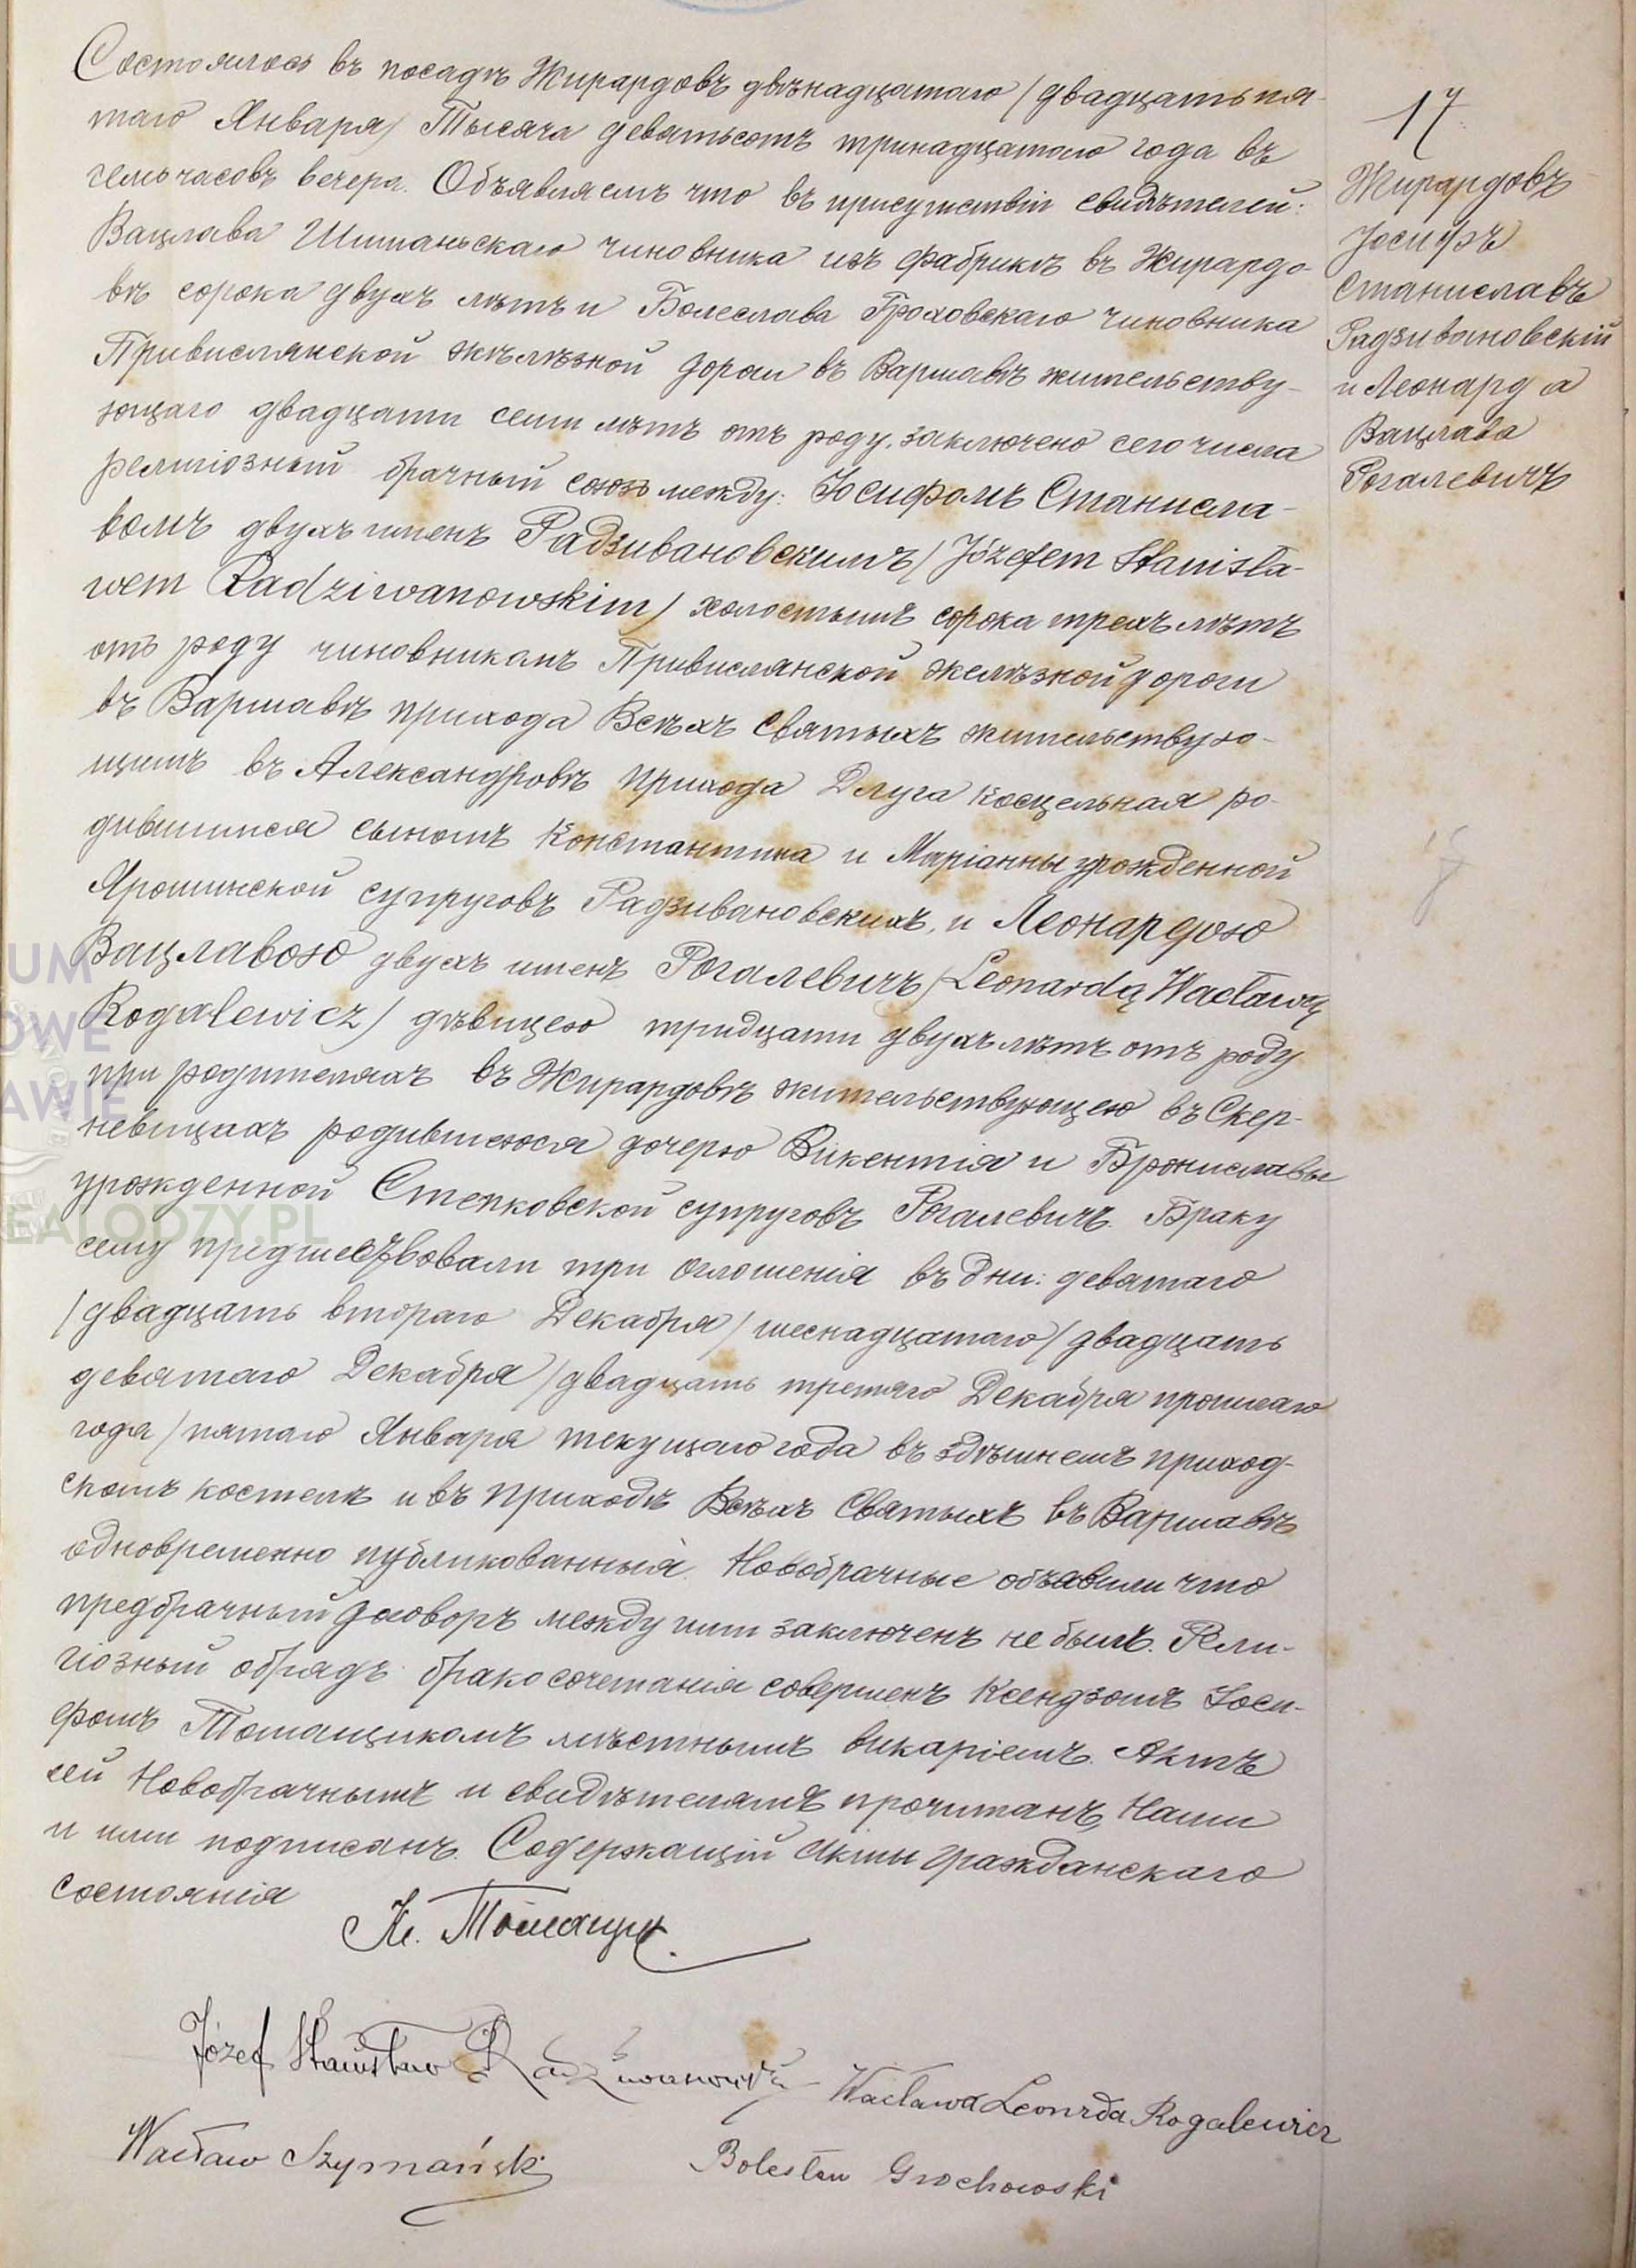 Состоялось въ посадѣ Жирардовъ двѣнадцатаго /двадцать пя-
таго Января/ Тысяча девятьсотъ тринадцатаго года въ
семь часовъ вечера. Объявляемъ что въ присутствіи свидѣтелей:
Вацлава Шиманьскаго чиновника изъ фабрики въ Жирардо-
вѣ сорока двухъ лѣтъ и Болеслава Гроховскаго чиновника
Привислянской желѣзной дороги въ Варшавѣ жительству-
ющаго двадцати семи лѣтъ отъ роду, заключено сего числа
религіозный брачный союзъ между: Іосифомъ Станисла-
вомъ двухъ именъ Радзивановскимъ /Józefem Stanisła-
wem Radziwanowskim/ холостымъ сорока трехъ лѣтъ
отъ роду чиновникомъ Привислянской желѣзной дороги
въ Варшавѣ прихода Всѣхъ Святыхъ жительствую-
щимъ въ Александровѣ прихода Длуга Косцельная ро-
дившимся сыномъ Константина и Маріанны урожденной
Ярошинской супруговъ Радзивановскихъ, и Леонардою
Вацлавою двухъ именъ Рогалевичъ /Leonardą Wacławą
Rogalewicz/ дѣвицею тридцати двухъ лѣтъ отъ роду
при родителяхъ въ Жирардовѣ жительствующею въ Скер-
невицахъ родившеюся дочерью Викентія и Брониславы
урожденной Степковской супруговъ Рогалевичъ. Браку
сему предшествовали три оглошенія въ дни: девятаго
/двадцать втораго Декабря/ шеснадцатаго /двадцать
девятаго Декабря/ двадцать третяго Декабря прошлаго
года /пятаго Января текущаго года въ здѣшнемъ приход-
скомъ костелѣ и въ приходѣ Всѣхъ Святыхъ въ Варшавѣ
одновременно публикованныя. Новобрачные объявили что
предбрачный договоръ между ними заключенъ не былъ. Рели-
гіозный обрядъ бракосочетанія совершенъ Ксендзомъ Іоси-
фомъ Томащикомъ мѣстнымъ викаріемъ. Актъ
сей Новобрачнымъ и свидѣтелямъ прочитанъ, Нами
и ими подписанъ. Содержащій Акты гражданскаго
состоянія
Кс. Томащик
Józef Stanisław Radziwanowski
Wacława Leonrda Rogalewicz
Wacław Szymański
Bolesław Grochowski
17
Жирардовъ
Іосифъ
Станиславъ
Радзивановскій
и Леонарда
Вацлава
Рогалевичъ
UM
OWE
AWIE
EALODZY.PL